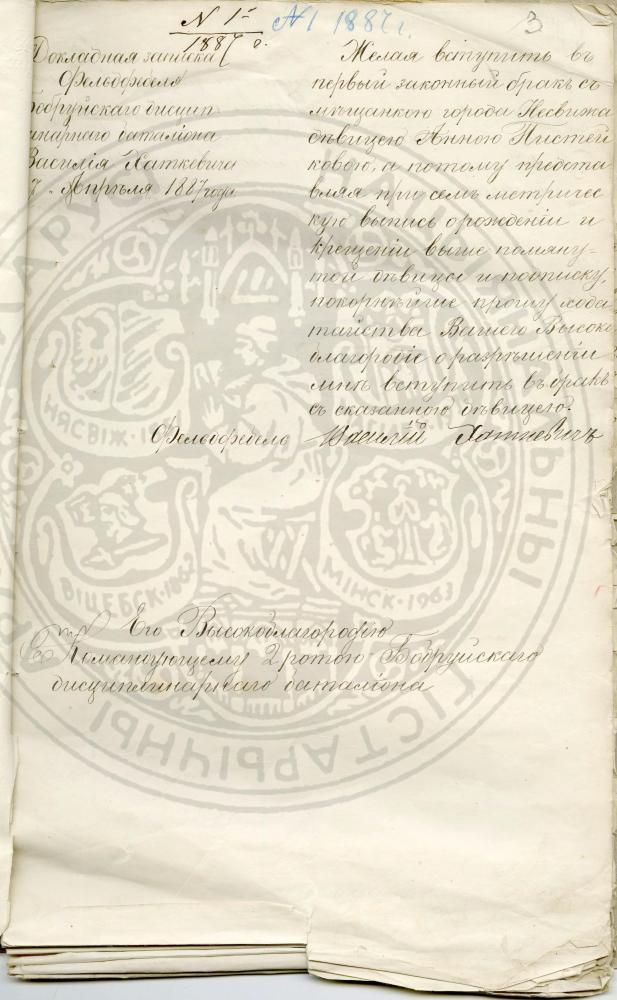 N 1й
1887 г.
№1 1887 г.
3
Докладная записка
Фельдфебеля
Бобруйскаго дисцип
линарнаго баталіона
Василія Хаткевича
7. Апрѣля 1887 года
Желая вступить въ
первый законный бракъ съ
мѣщанкою города Несвижа
дѣвицею Анною Пистей
ковою, а потому предста
вляя при семъ метричес
кую выпись о рожденіи и
крещеніи выше помяну=
той дѣвицы и подписку,
покорнѣйше прошу хода
тайства Вашего Высоко
благородіе о разрѣшеніи
мнѣ вступить въ бракъ
съ сказанною дѣвицею.
Фельдфебель Василій Хаткевичъ
Его Высокоблагородію
Командующему 2 ротою Бобруйскаго
дисциплинарнаго баталіона
НЯСВІЖ
ВІЦЕБСК
МІНСК·1963
ГІСТАРЫЧНЫ